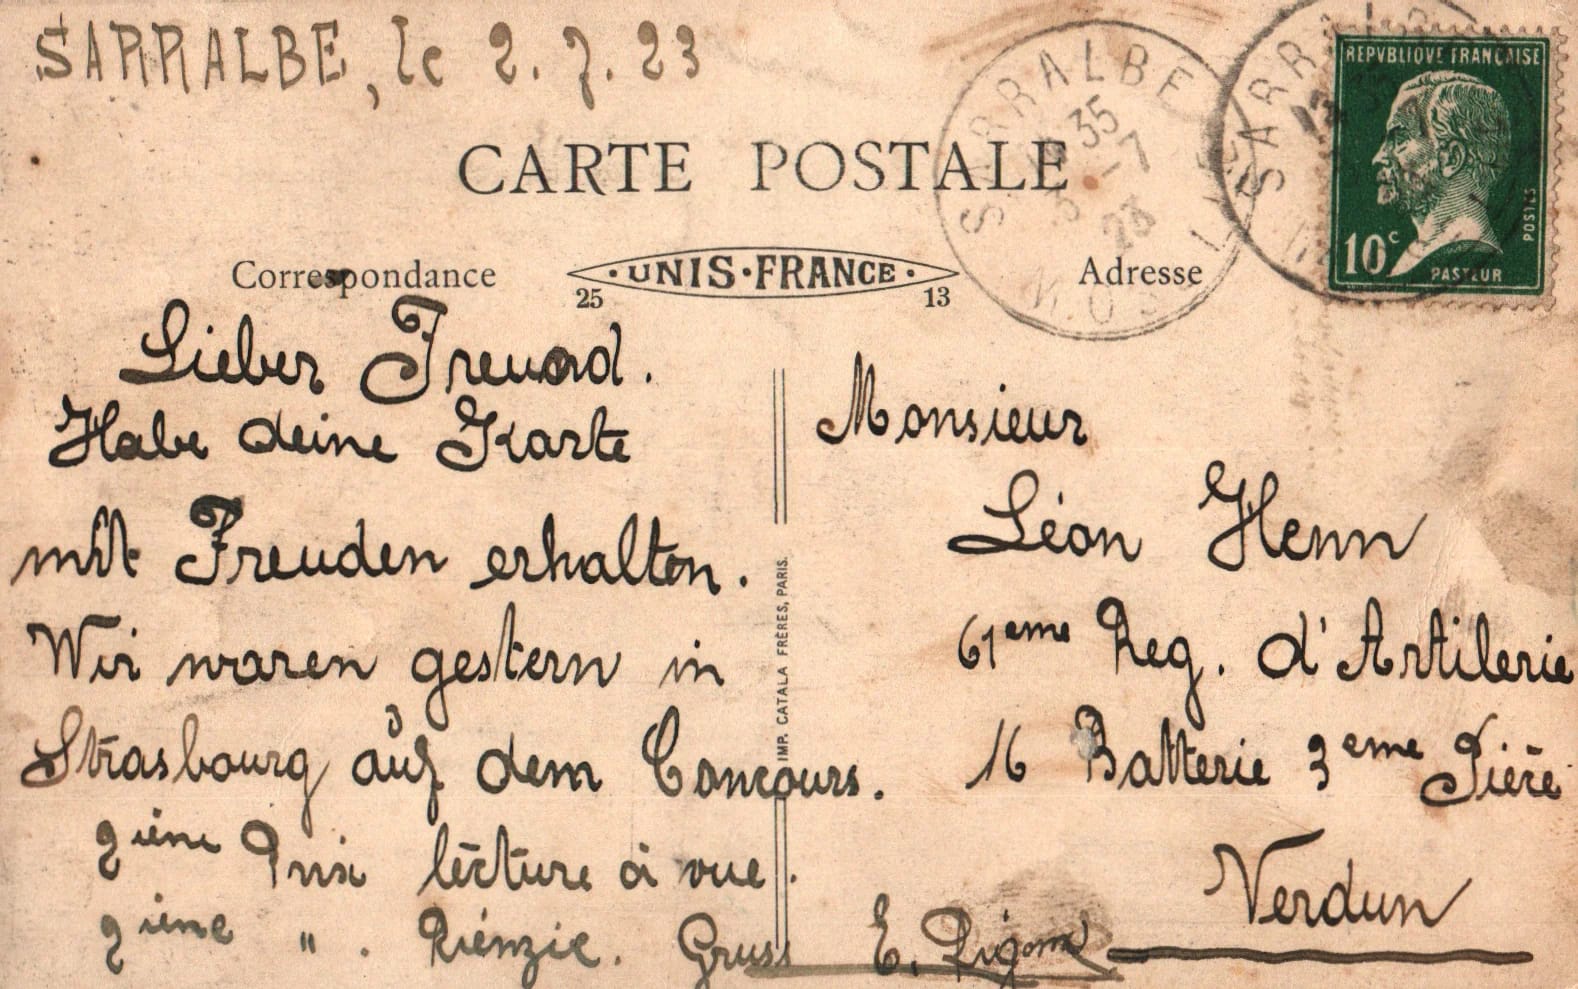 SARRALBE, le 2.7.23
SARRALBE
35
5 - 7
23
MOSELLE
SARR
REPVBLIQVE FRANCAISE
POSTES
10c
PASTEUR
CARTE POSTALE
Correspondance
·UNIS·FRANCE·
25 13
Adresse
Lieber Freund.
Habe deine Karte
mit Freuden erhalten.
Wir waren gestern in
Strasbourg auf dem Concours.
2ième Prix lécture à vue.
2ième " . Riénzie. Gruss E.
IMP. CATALA FRÈRES, PARIS.
Monsieur
Léon Henn
61eme Reg. d'Artilerie
16 Batterie 3eme Pièrè
Verdun